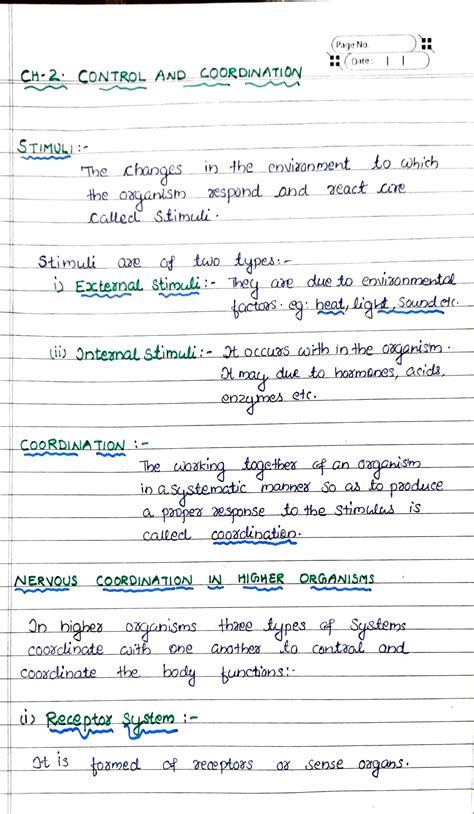 Page No.
Date: | |
CH-2. CONTROL AND COORDINATION
STIMULI :-
The changes in the environment to which
the organism respond and react are
called Stimuli.
Stimuli are of two types:-
i) External stimuli :- They are due to environmental
factors. eg: heat, light, sound etc.
(ii) Internal stimuli :- It occurs with in the organism.
It may due to hormones, acids,
enzymes etc.
COORDINATION :-
The working together of an organism
in a systematic manner so as to produce
a proper response to the stimulus is
called coordination.
NERVOUS COORDINATION IN HIGHER ORGANISMS
In higher organisms three types of systems
coordinate with one another to control and
coordinate the body functions:-
(i) Receptor System :-
It is formed of receptors or sense organs.